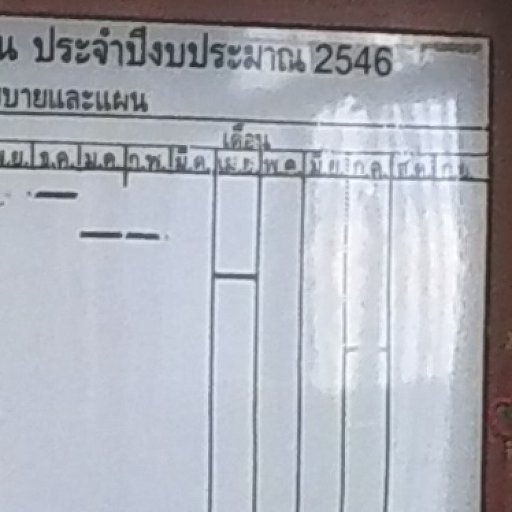 น ประจำปีงบประมาณ 2546
บายและแผน
เดือน
ม.ย. ธ.ค. ม.ค. ก.พ. มี.ค. เม.ย. พ.ค. มิ.ย. ก.ค. ส.ค. ก.ย.